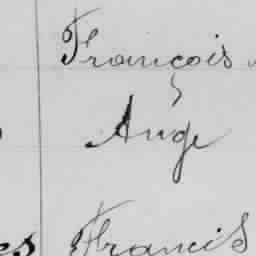 François
Ange
es Francis